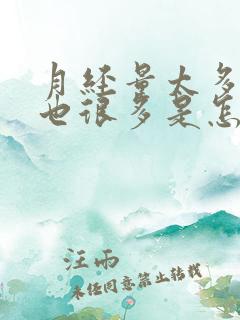 月经量太多
也很多是怎
汪雨
未经同意禁止转载